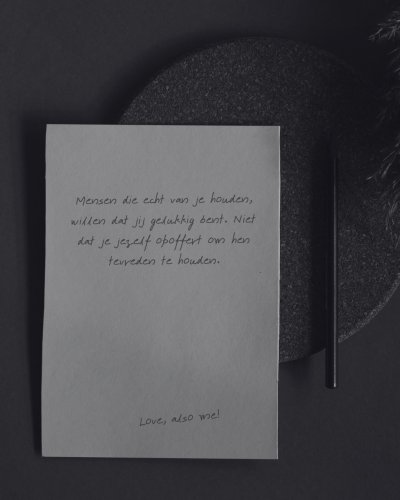 Mensen die echt van je houden,
willen dat jij gelukkig bent. Niet
dat je jezelf opoffert om hen
tevreden te houden.
Love, also me!